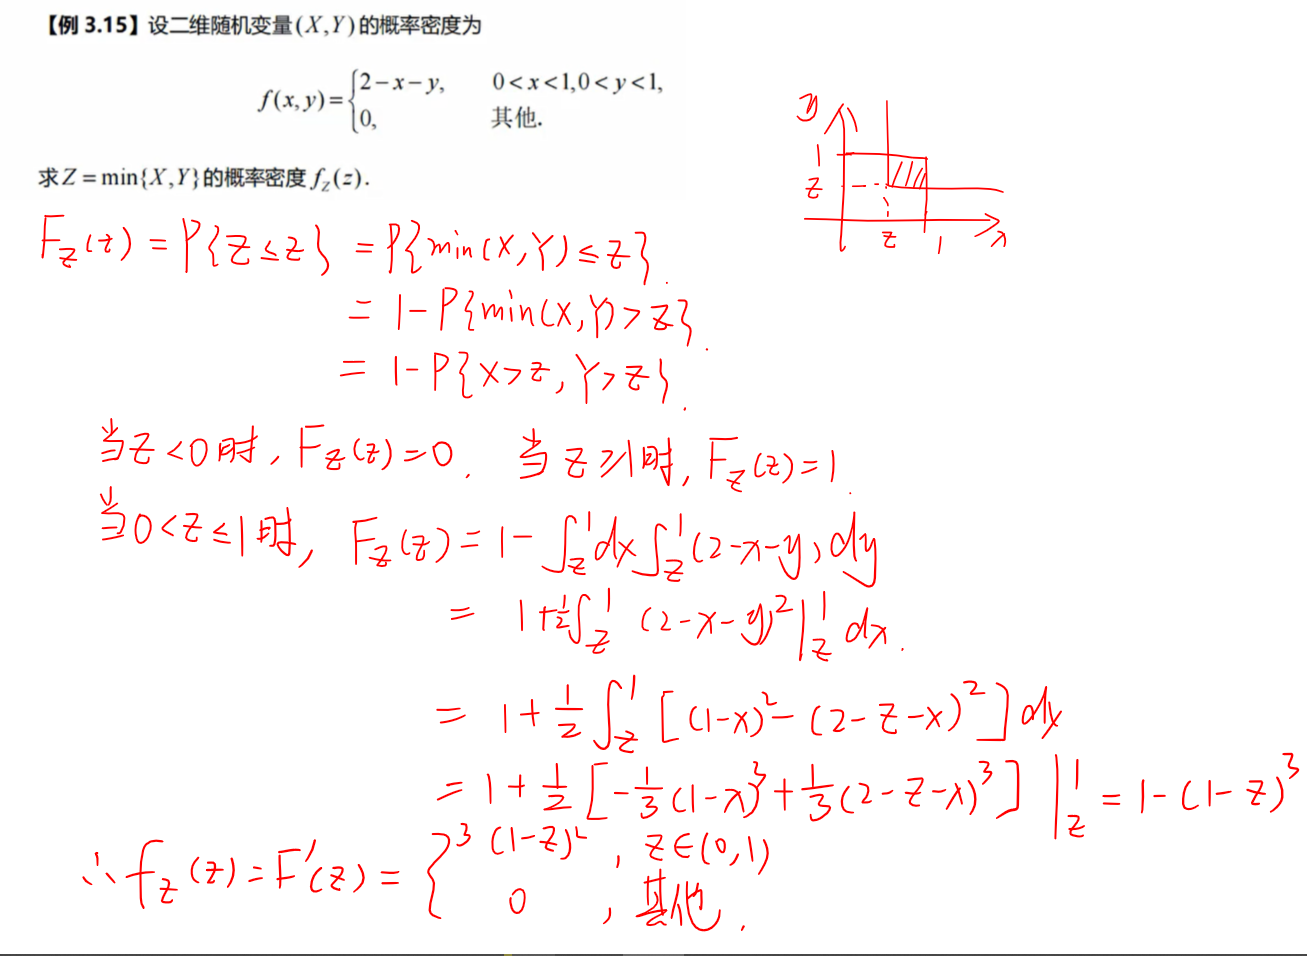 【例 3.15】设二维随机变量(X,Y)的概率密度为
f(x,y)={2-x-y, 0<x<1,0<y<1,
0, 其他.
求Z=min{X,Y}的概率密度f_Z(z).
y
1
z
z 1 x
F_Z(z)=P{Z≤z}=P{min(X,Y)≤z}.
=1-P{min(X,Y)>z}.
=1-P{X>z,Y>z}.
当z<0时,F_Z(z)=0. 当z≥1时,F_Z(z)=1.
当0<z≤1时,F_Z(z)=1-∫_z^1dx∫_z^1(2-x-y)dy
=1+½∫_z^1(2-x-y)²|_z^1dx.
=1+½∫_z^1[(1-x)²-(2-z-x)²]dx
=1+½[-⅓(1-x)³+⅓(2-z-x)³]|_z^1=1-(1-z)³
∴f_Z(z)=F'(z)={3(1-z)²,z∈(0,1)
0,其他.